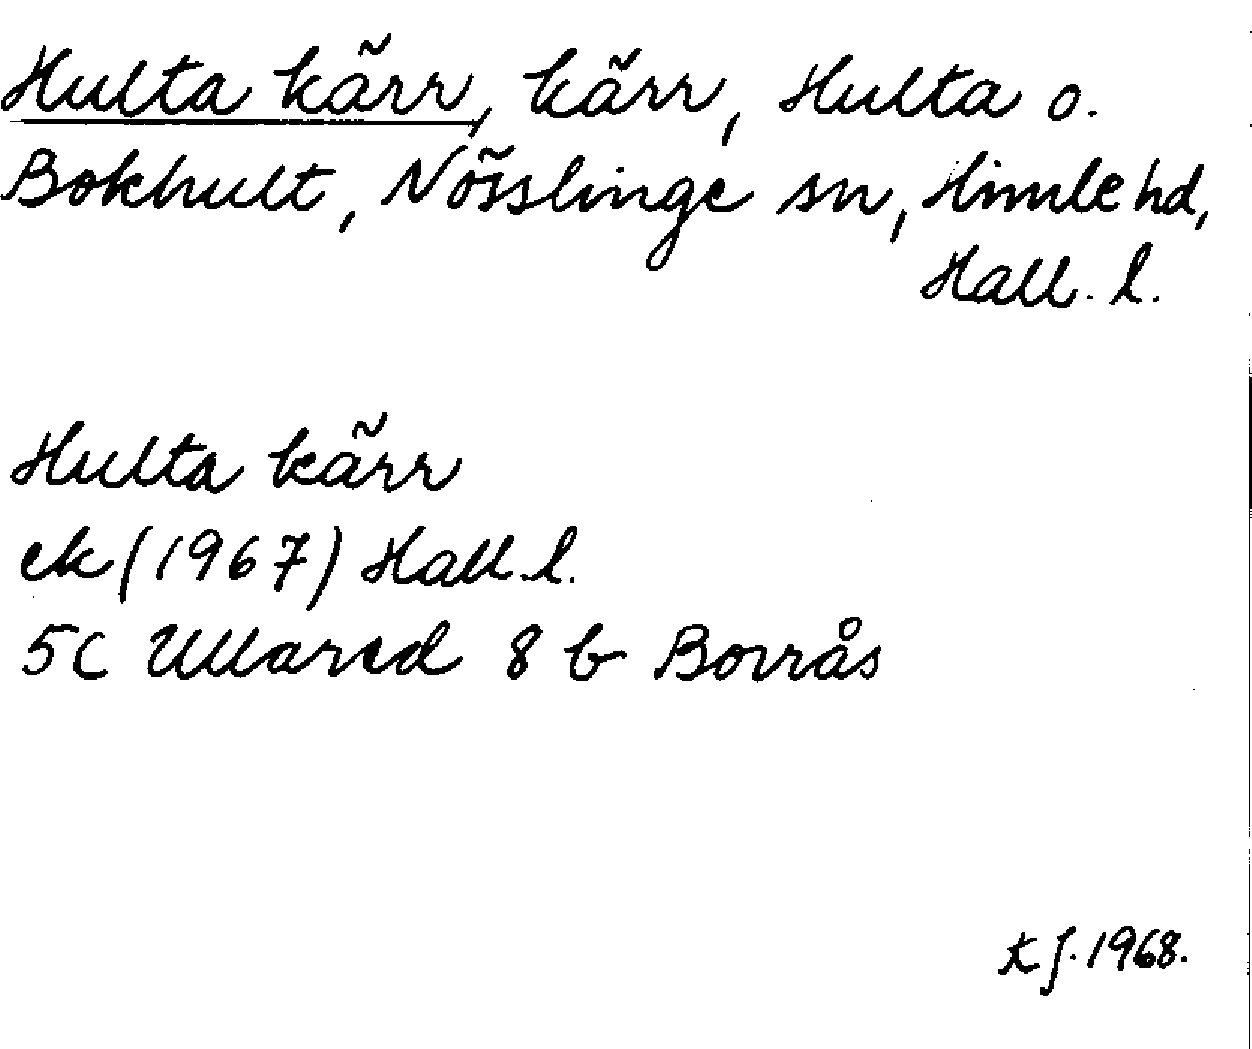 Hulta kärr, kärr, Hulta o.
Bokhult, Nösslinge sn, Himle hd,
Hall. l.
Hulta kärr
ek (1967) Hall. l.
5C Ullared 8 b Borrås
t f. 1968.